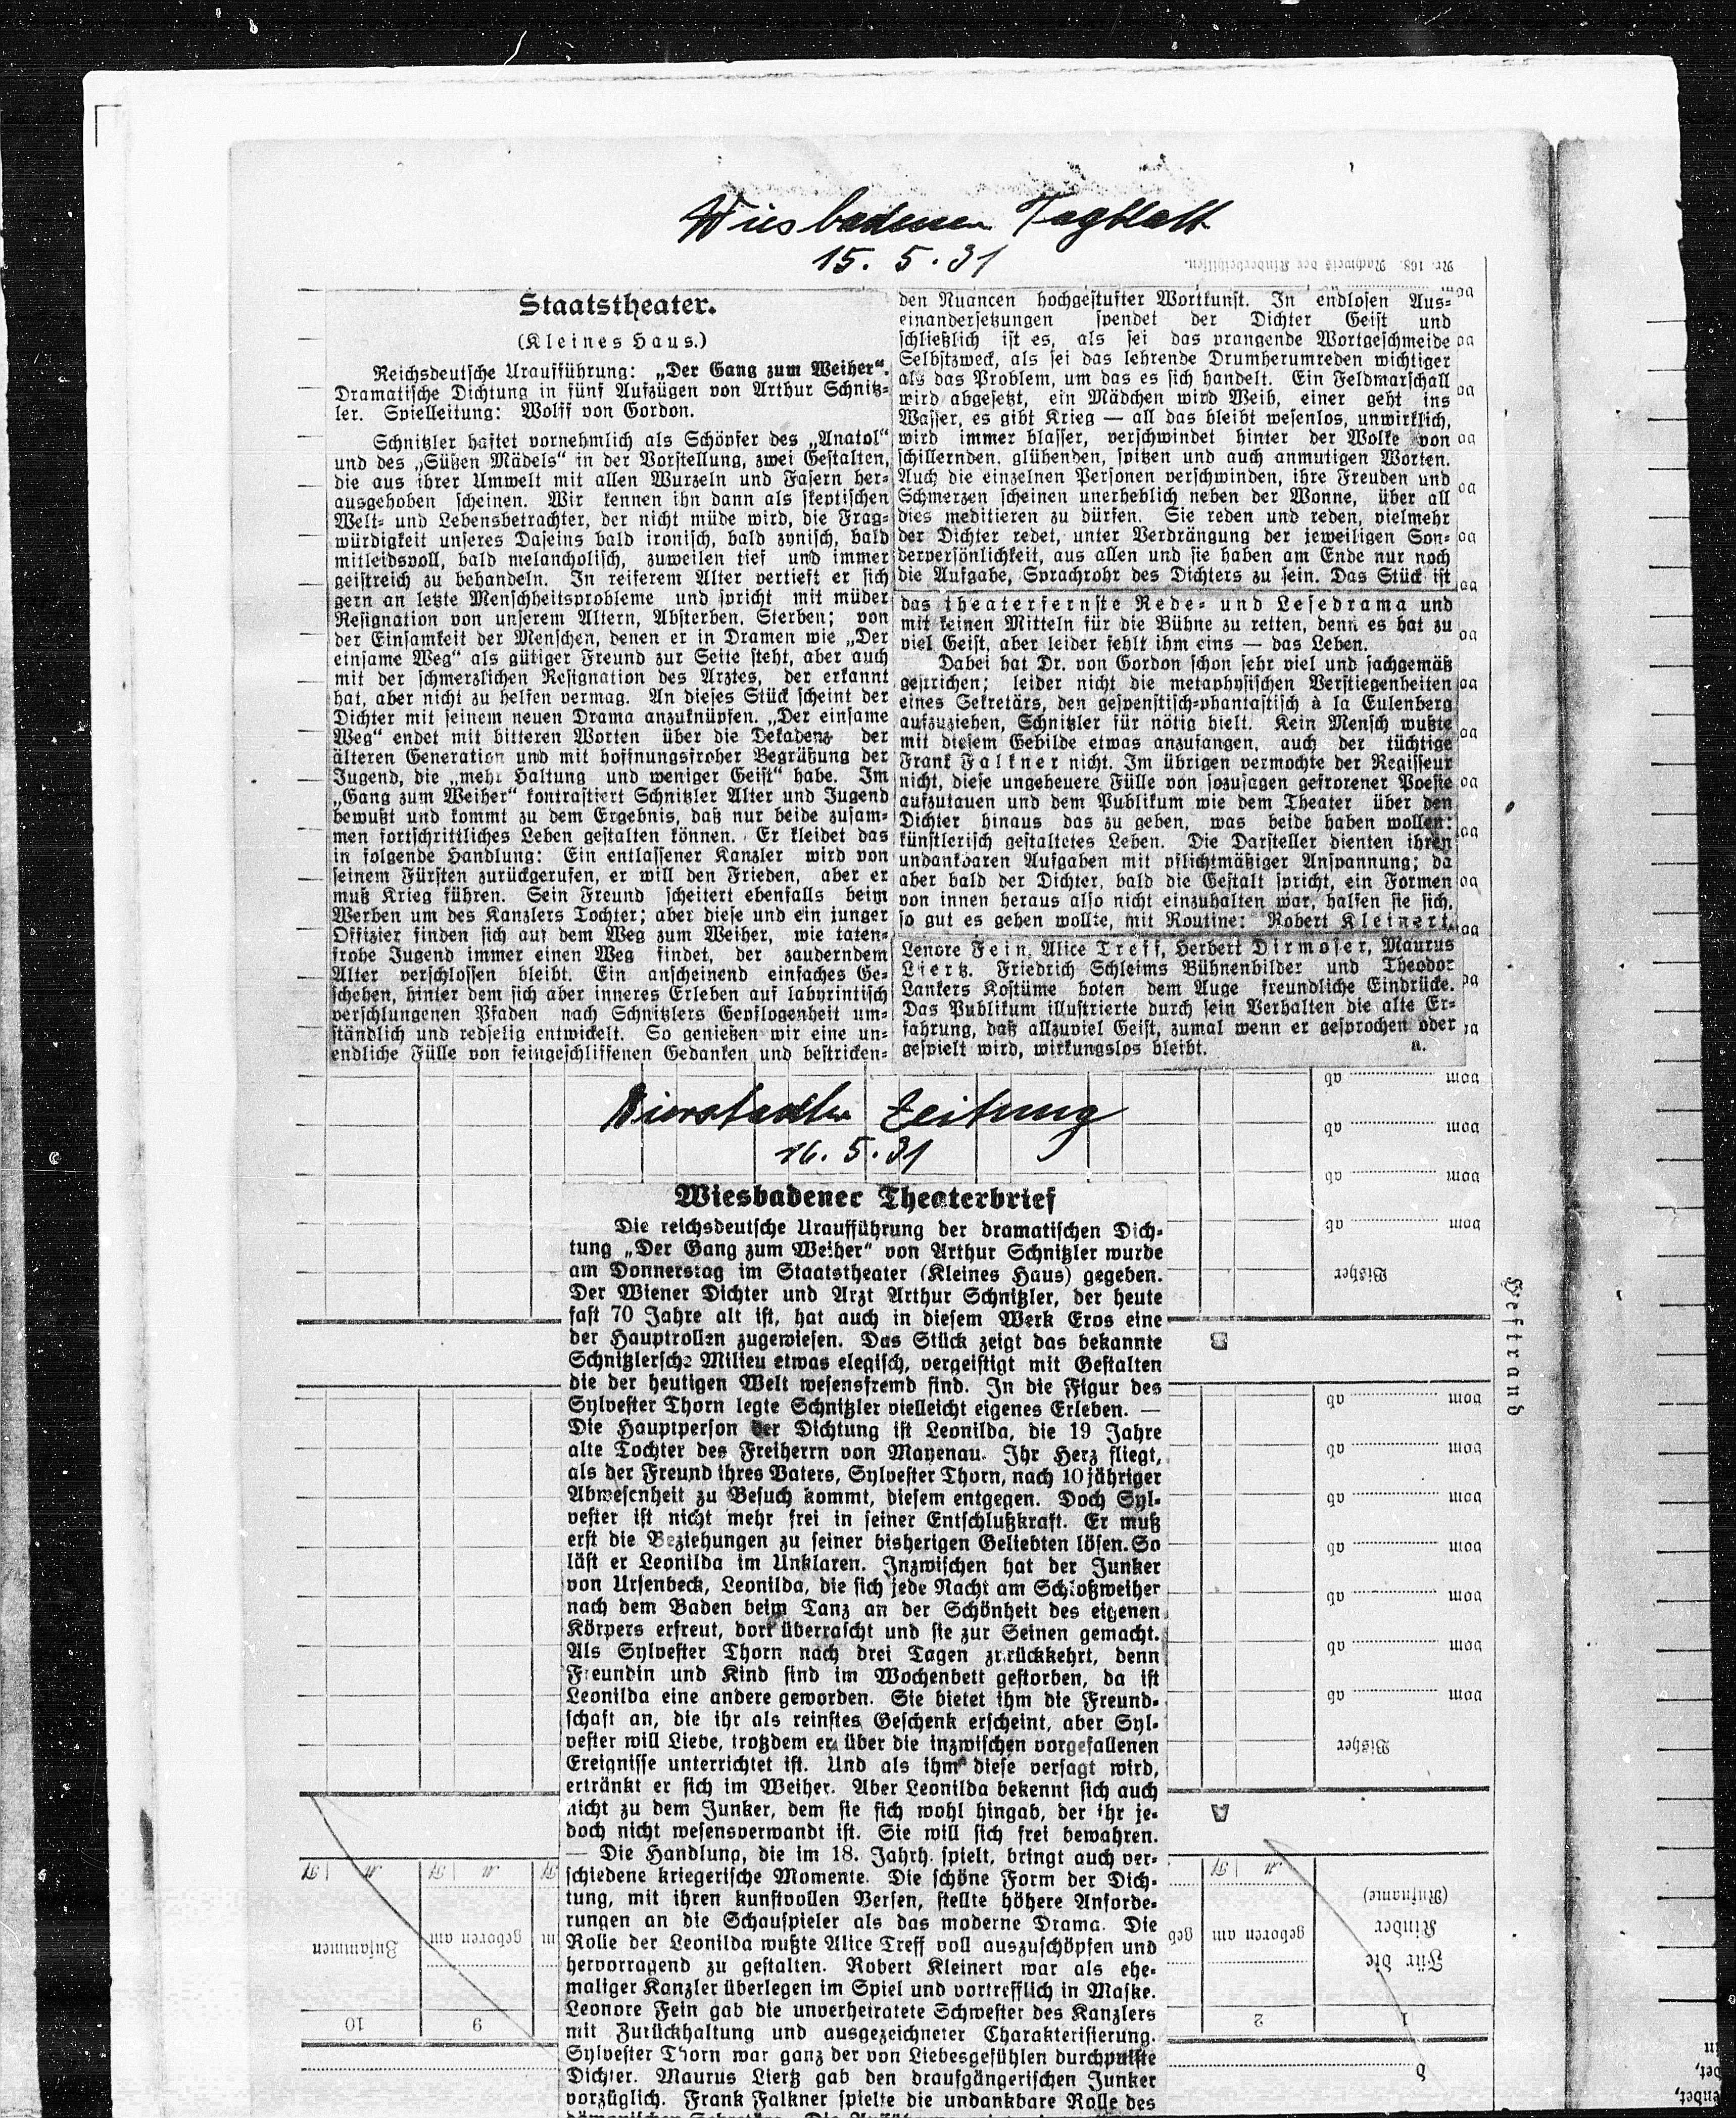 Wiesbadener Tagblatt
15. 5. 31
Nr. 168. Nachweis der Kinderbeihilfen.
Staatstheater.
(Kleines Haus.)
Reichsdeutsche Uraufführung: „Der Gang zum Weiher“.
Dramatische Dichtung in fünf Aufzügen von Arthur Schnitz-
ler. Spielleitung: Wolff von Gordon.
Schnitzler haftet vornehmlich als Schöpfer des „Anatol“
und des „Süßen Mädels“ in der Vorstellung, zwei Gestalten,
die aus ihrer Umwelt mit allen Wurzeln und Fasern her-
ausgehoben scheinen. Wir kennen ihn dann als skeptischen
Welt- und Lebensbetrachter, der nicht müde wird, die Frag-
würdigkeit unseres Daseins bald ironisch, bald zynisch, bald
mitleidsvoll, bald melancholisch, zuweilen tief und immer
geistreich zu behandeln. In reiferem Alter vertieft er sich
gern an letzte Menschheitsprobleme und spricht mit müder
Resignation von unserem Altern, Absterben, Sterben; von
der Einsamkeit der Menschen, denen er in Dramen wie „Der
einsame Weg“ als gütiger Freund zur Seite steht, aber auch
mit der schmerzlichen Resignation des Arztes, der erkannt
hat, aber nicht zu helfen vermag. An dieses Stück scheint der
Dichter mit seinem neuen Drama anzuknüpfen. „Der einsame
Weg“ endet mit bitteren Worten über die Dekadenz der
älteren Generation und mit hoffnungsfroher Begrüßung der
Jugend, die „mehr Haltung und weniger Geist“ habe. Im
„Gang zum Weiher“ kontrastiert Schnitzler Alter und Jugend
bewußt und kommt zu dem Ergebnis, daß nur beide zusam-
men fortschrittliches Leben gestalten können. Er kleidet das
in folgende Handlung: Ein entlassener Kanzler wird von
seinem Fürsten zurückgerufen, er will den Frieden, aber er
muß Krieg führen. Sein Freund scheitert ebenfalls beim
Werben um des Kanzlers Tochter; aber diese und ein junger
Offizier finden sich auf dem Weg zum Weiher, wie taten-
frohe Jugend immer einen Weg findet, der zauderndem
Alter verschlossen bleibt. Ein anscheinend einfaches Ge-
schehen, hinter dem sich aber inneres Erleben auf labyrintisch
verschlungenen Pfaden nach Schnitzlers Gepflogenheit um-
ständlich und redselig entwickelt. So genießen wir eine un-
endliche Fülle von feingeschliffenen Gedanken und bestricken-
den Nuancen hochgestufter Wortkunst. In endlosen Aus-
einandersetzungen spendet der Dichter Geist und
schließlich ist es, als sei das prangende Wortgeschmeide
Selbstzweck, als sei das lehrende Drumherumreden wichtiger
als das Problem, um das es sich handelt. Ein Feldmarschall
wird abgesetzt, ein Mädchen wird Weib, einer geht ins
Wasser, es gibt Krieg — all das bleibt wesenlos, unwirklich,
wird immer blasser, verschwindet hinter der Wolke von
schillernden, glühenden, spitzen und auch anmutigen Worten.
Auch die einzelnen Personen verschwinden, ihre Freuden und
Schmerzen scheinen unerheblich neben der Wonne, über all
dies meditieren zu dürfen. Sie reden und reden, vielmehr
der Dichter redet, unter Verdrängung der jeweiligen Son-
derpersönlichkeit, aus allen und sie haben am Ende nur noch
die Aufgabe, Sprachrohr des Dichters zu sein. Das Stück ist
das theaterfernste Rede- und Lesedrama und
mit keinen Mitteln für die Bühne zu retten, denn es hat zu
viel Geist, aber leider fehlt ihm eins — das Leben.
Dabei hat Dr. von Gordon schon sehr viel und sachgemäß
gestrichen; leider nicht die metaphysischen Verstiegenheiten
eines Sekretärs, den gespenstisch-phantastisch à la Eulenberg
aufzuziehen, Schnitzler für nötig hielt. Kein Mensch wußte
mit diesem Gebilde etwas anzufangen, auch der tüchtige
Frank Falkner nicht. Im übrigen vermochte der Regisseur
nicht, diese ungeheuere Fülle von sozusagen gefrorener Poesie
aufzutauen und dem Publikum wie dem Theater über den
Dichter hinaus das zu geben, was beide haben wollen:
künstlerisch gestaltetes Leben. Die Darsteller dienten ihren
undankbaren Aufgaben mit pflichtmäßiger Anspannung; da
aber bald der Dichter, bald die Gestalt spricht, ein Formen
von innen heraus also nicht einzuhalten war, halfen sie sich,
so gut es gehen wollte, mit Routine: Robert Kleinert,
Lenore Fein, Alice Treff, Herbert Dirmoser, Maurus
Liertz. Friedrich Schleims Bühnenbilder und Theodor
Lankers Kostüme boten dem Auge freundliche Eindrücke.
Das Publikum illustrierte durch sein Verhalten die alte Er-
fahrung, daß allzuviel Geist, zumal wenn er gesprochen oder
gespielt wird, wirkungslos bleibt. a.
Bierstadter Zeitung
16. 5. 31
Wiesbadener Theaterbrief
Die reichsdeutsche Uraufführung der dramatischen Dich-
tung „Der Gang zum Weiher“ von Arthur Schnitzler wurde
am Donnerstag im Staatstheater (Kleines Haus) gegeben.
Der Wiener Dichter und Arzt Arthur Schnitzler, der heute
fast 70 Jahre alt ist, hat auch in diesem Werk Eros eine
der Hauptrollen zugewiesen. Das Stück zeigt das bekannte
Schnitzlersche Milieu etwas elegisch, vergeistigt mit Gestalten
die der heutigen Welt wesensfremd sind. In die Figur des
Sylvester Thorn legte Schnitzler vielleicht eigenes Erleben. —
Die Hauptperson der Dichtung ist Leonilda, die 19 Jahre
alte Tochter des Freiherrn von Mayenau. Ihr Herz fliegt,
als der Freund ihres Vaters, Sylvester Thorn, nach 10jähriger
Abwesenheit zu Besuch kommt, diesem entgegen. Doch Syl-
vester ist nicht mehr frei in seiner Entschlußkraft. Er muß
erst die Beziehungen zu seiner bisherigen Geliebten lösen. So
läßt er Leonilda im Unklaren. Inzwischen hat der Junker
von Ursenbeck, Leonilda, die sich jede Nacht am Schloßweiher
nach dem Baden beim Tanz an der Schönheit des eigenen
Körpers erfreut, dort überrascht und sie zur Seinen gemacht.
Als Sylvester Thorn nach drei Tagen zurückkehrt, denn
Freundin und Kind sind im Wochenbett gestorben, da ist
Leonilda eine andere geworden. Sie bietet ihm die Freund-
schaft an, die ihr als reinstes Geschenk erscheint, aber Syl-
vester will Liebe, trotzdem er über die inzwischen vorgefallenen
Ereignisse unterrichtet ist. Und als ihm diese versagt wird,
ertränkt er sich im Weiher. Aber Leonilda bekennt sich auch
nicht zu dem Junker, dem sie sich wohl hingab, der ihr je-
doch nicht wesensverwandt ist. Sie will sich frei bewahren.
— Die Handlung, die im 18. Jahrh. spielt, bringt auch ver-
schiedene kriegerische Momente. Die schöne Form der Dich-
tung, mit ihren kunstvollen Versen, stellte höhere Anforde-
rungen an die Schauspieler als das moderne Drama. Die
Rolle der Leonilda wußte Alice Treff voll auszuschöpfen und
hervorragend zu gestalten. Robert Kleinert war als ehe-
maliger Kanzler überlegen im Spiel und vortrefflich in Maske.
Leonore Fein gab die unverheiratete Schwester des Kanzlers
mit Zurückhaltung und ausgezeichneter Charakterisierung.
Sylvester Thorn war ganz der von Liebesgefühlen durchpulste
Dichter. Maurus Liertz gab den draufgängerischen Junker
vorzüglich. Frank Falkner spielte die undankbare Rolle des
vom ab
vom ab
vom ab
vom ab
Bisher
B
Heftrand
vom ab
vom ab
vom ab
vom ab
vom ab
vom ab
vom ab
Bisher
A
Für die
Kinder
(Rufname)
geboren am
geboren am
Zusammen
1
2
9
10